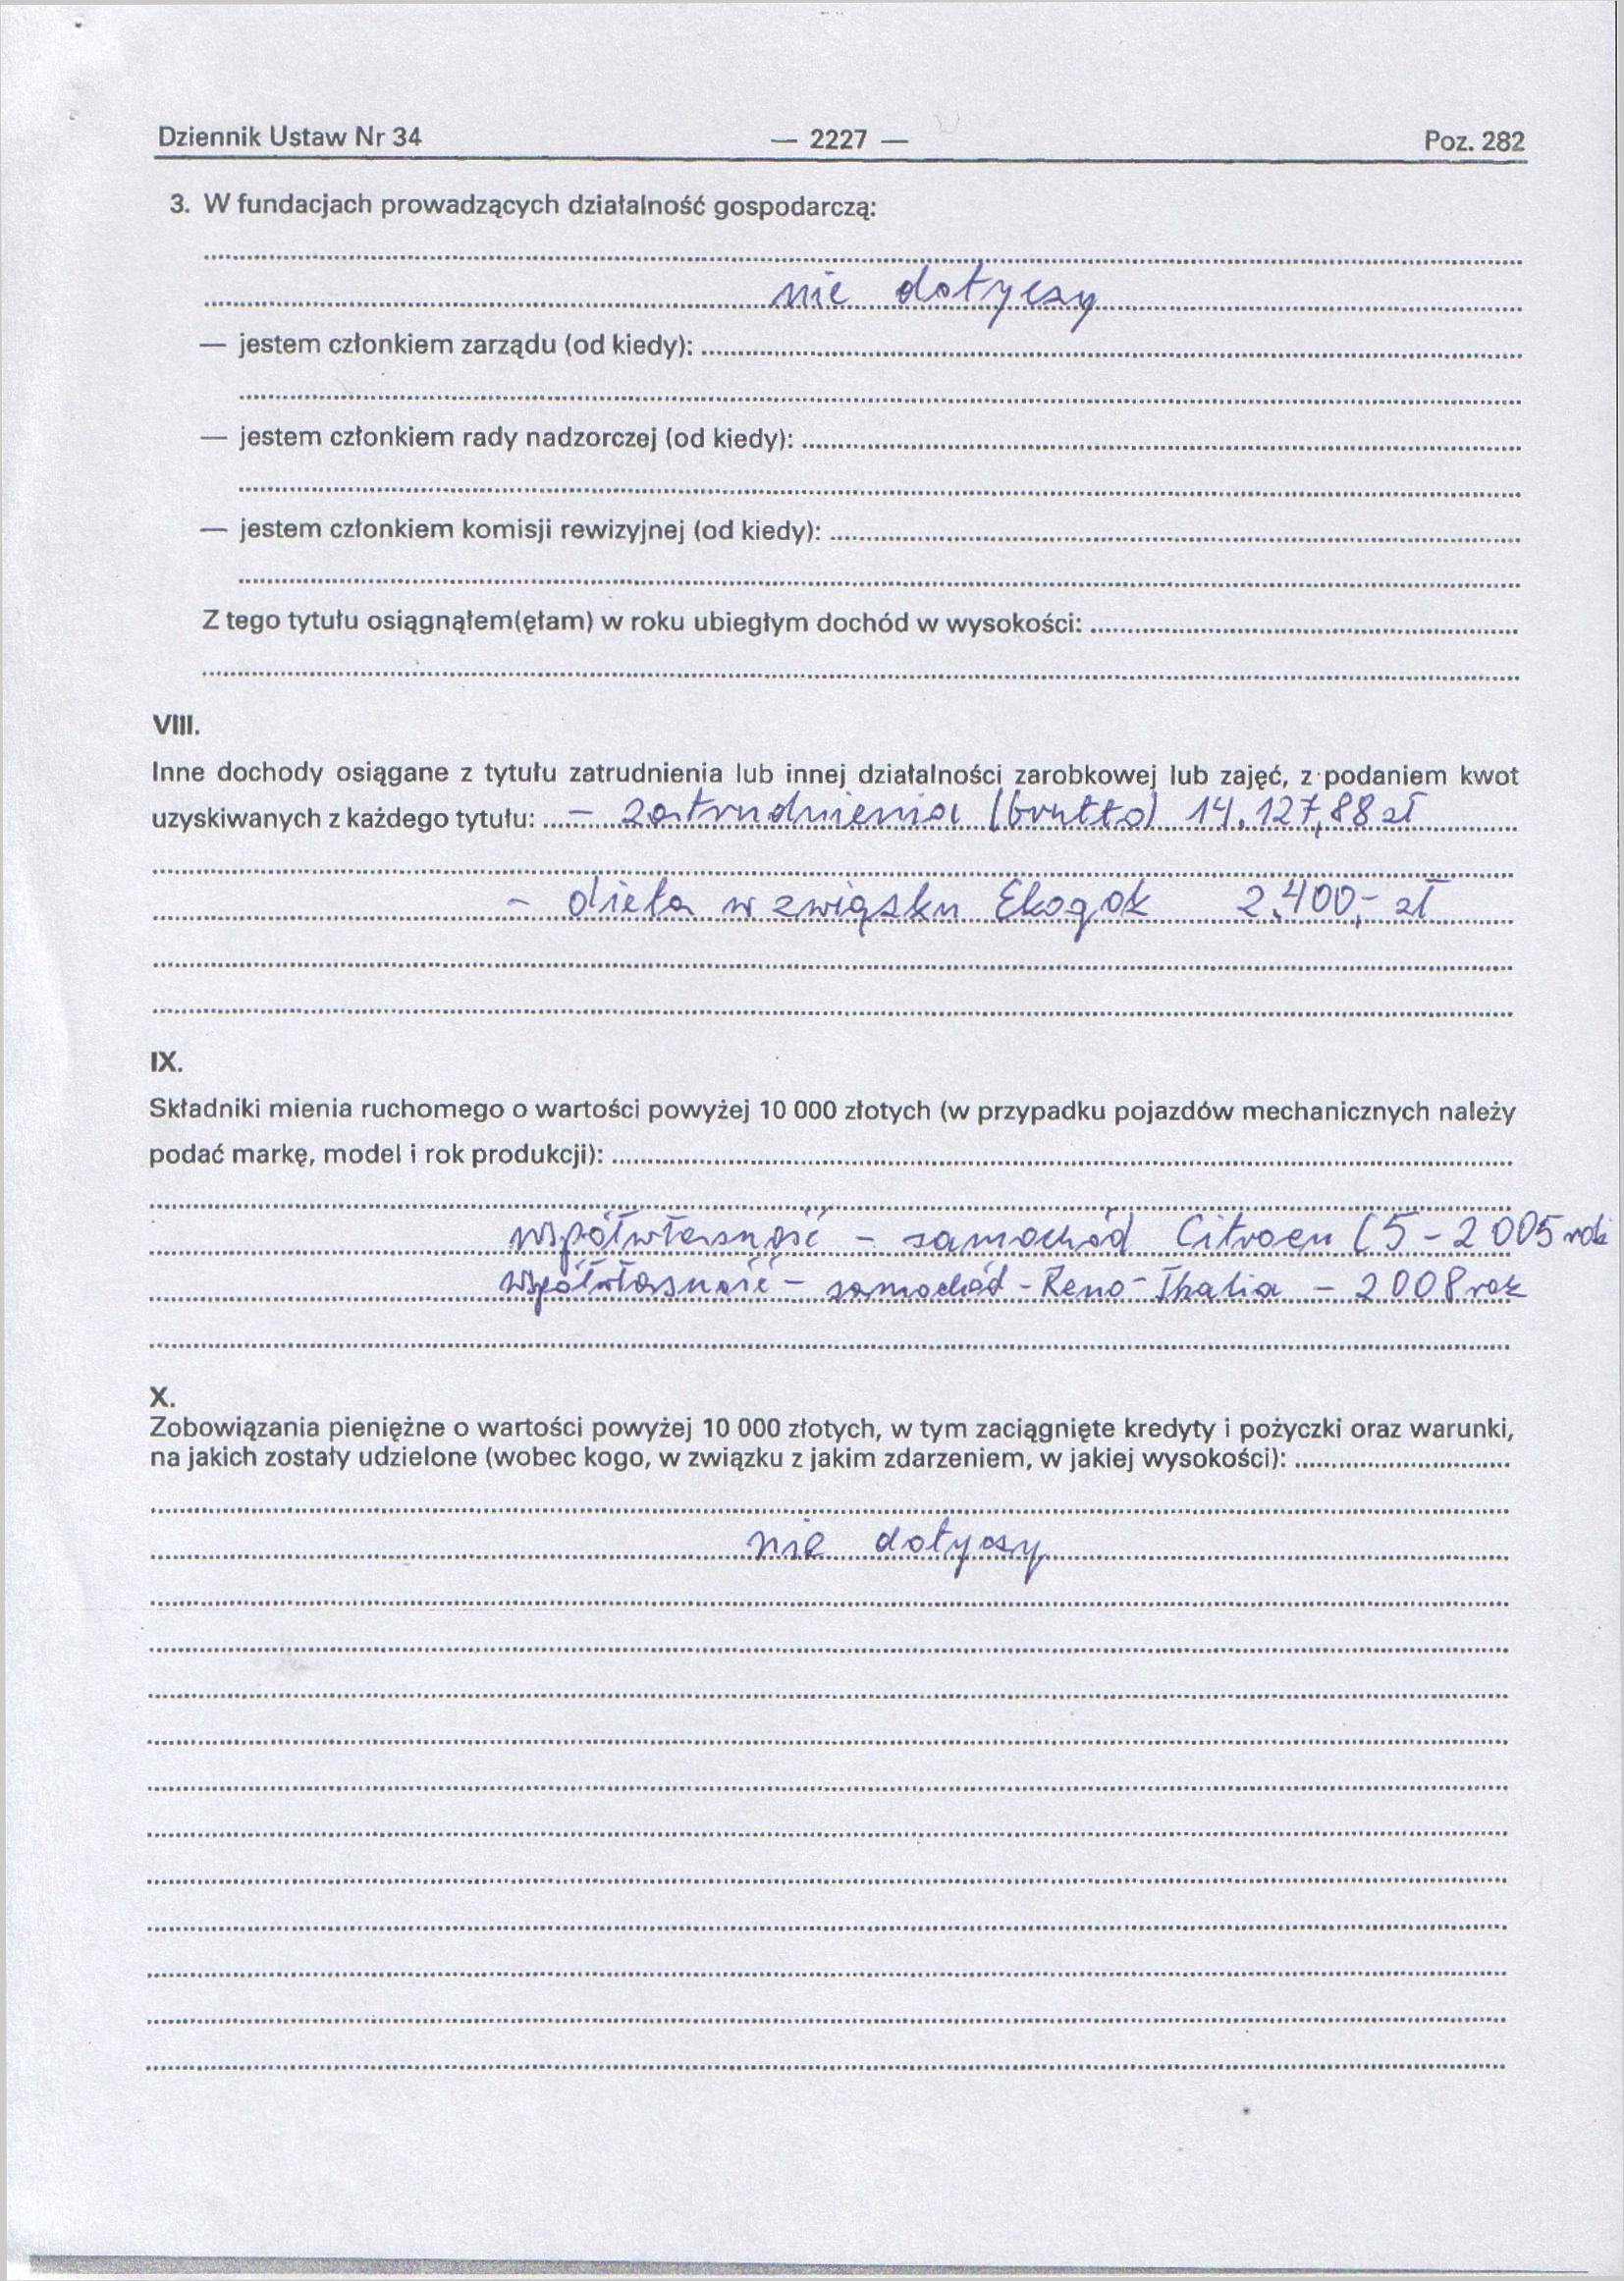 Dziennik Ustaw Nr 34 — 2227 — Poz. 282
3. W fundacjach prowadzących działalność gospodarczą:
nie dotyczy
— jestem członkiem zarządu (od kiedy):
— jestem członkiem rady nadzorczej (od kiedy):
— jestem członkiem komisji rewizyjnej (od kiedy):
Z tego tytułu osiągnąłem(ęłam) w roku ubiegłym dochód w wysokości:
VIII.
Inne dochody osiągane z tytułu zatrudnienia lub innej działalności zarobkowej lub zajęć, z podaniem kwot
uzyskiwanych z każdego tytułu: – zatrudnienia (brutto) 14.127,88 zł
– dieta w związku Ekogok 2.400,- zł
IX.
Składniki mienia ruchomego o wartości powyżej 10 000 złotych (w przypadku pojazdów mechanicznych należy
podać markę, model i rok produkcji):
współwłasność – samochód Citroen C5 – 2005 rok
współwłasność – samochód - Reno - Thalia – 2008 rok
X.
Zobowiązania pieniężne o wartości powyżej 10 000 złotych, w tym zaciągnięte kredyty i pożyczki oraz warunki,
na jakich zostały udzielone (wobec kogo, w związku z jakim zdarzeniem, w jakiej wysokości):
nie dotyczy